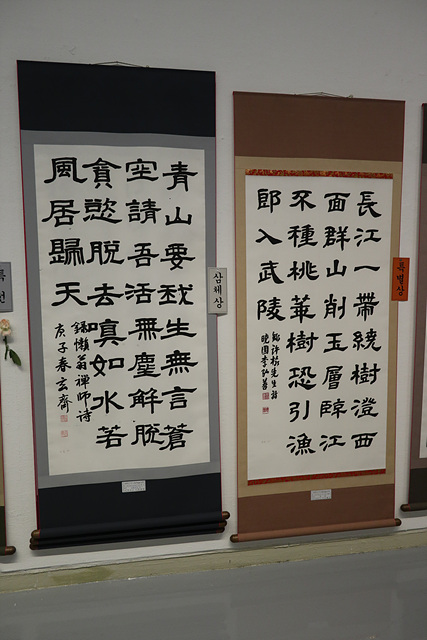 青山要我生無言蒼
空請吾活無塵解脫
貪慾脫去嗔如水若
風居歸天
錄懶翁禪師詩
庚子春玄齋
삼체상
長江一帶繞樹澄西
面群山削玉層障江
不種桃華樹恐引漁
郎入武陵
先生詩
특별상